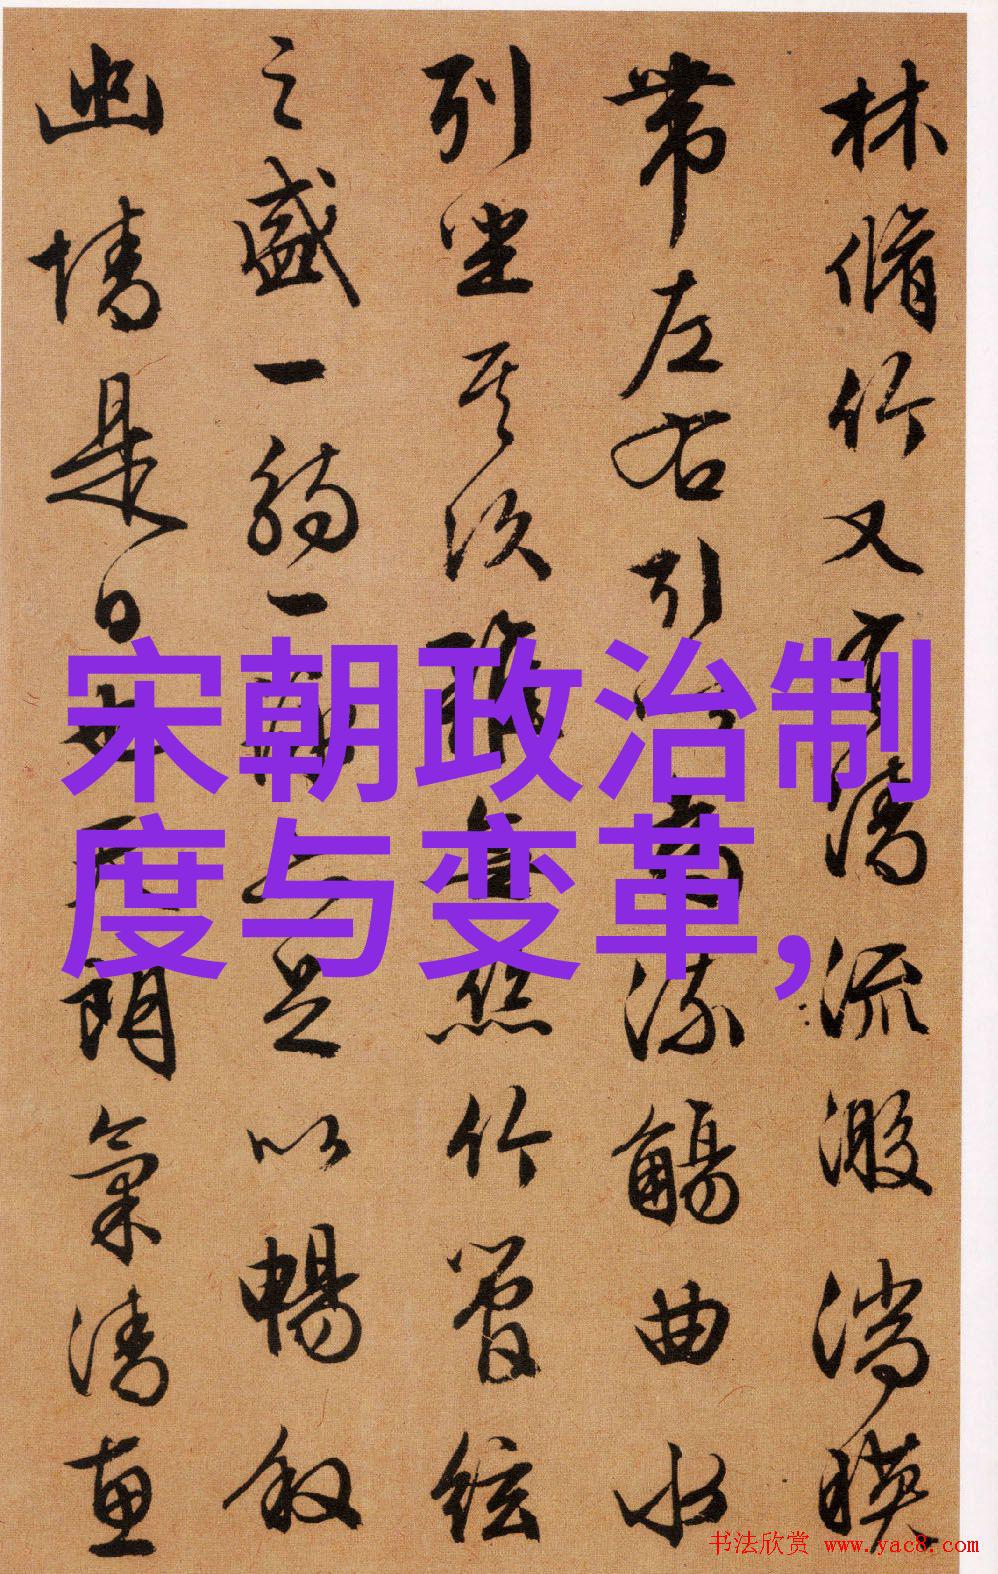 林脩竹又有清流激湍映
帶左右引以為流觴曲水
列坐其次雖無絲竹管絃
之盛一觴一詠亦足以暢敘
幽情是日也天朗氣清惠
宋朝政治制
度与变革,
书法欣赏 www.yac8.com